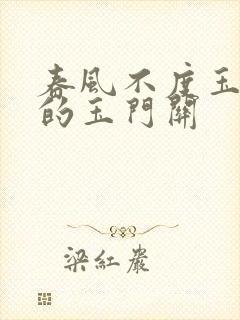 春風不度玉
的玉門關
梁紅嚴